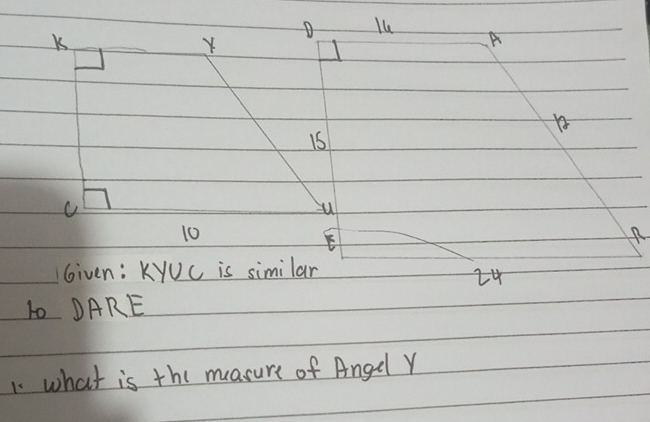 D 14 A
K Y
12
15
C U
10 E R
Given: KYUC is similar 24
to DARE
1. what is the measure of Angel Y